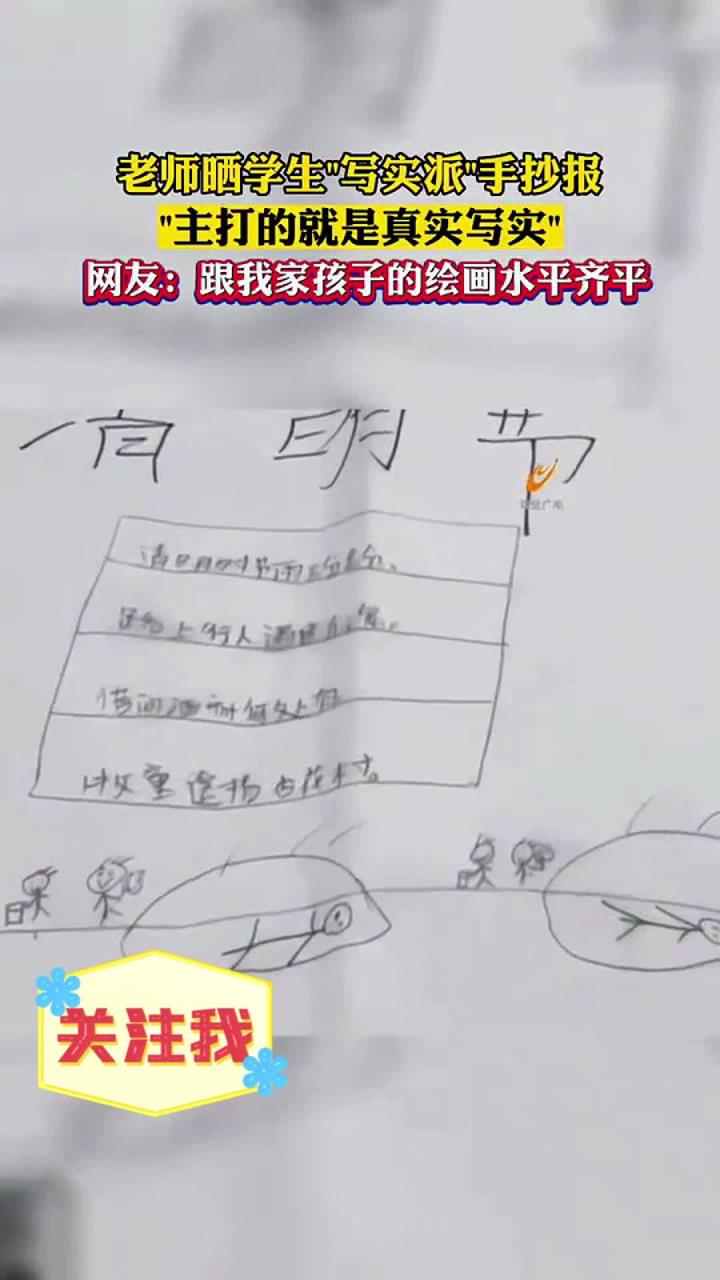 老师晒学生"写实派"手抄报
"主打的就是真实写实"
网友：跟我家孩子的绘画水平齐平
清明节
广电
清明时节雨纷纷。
上行人
借问酒何处有
牧童遥指杏花村。
关注我